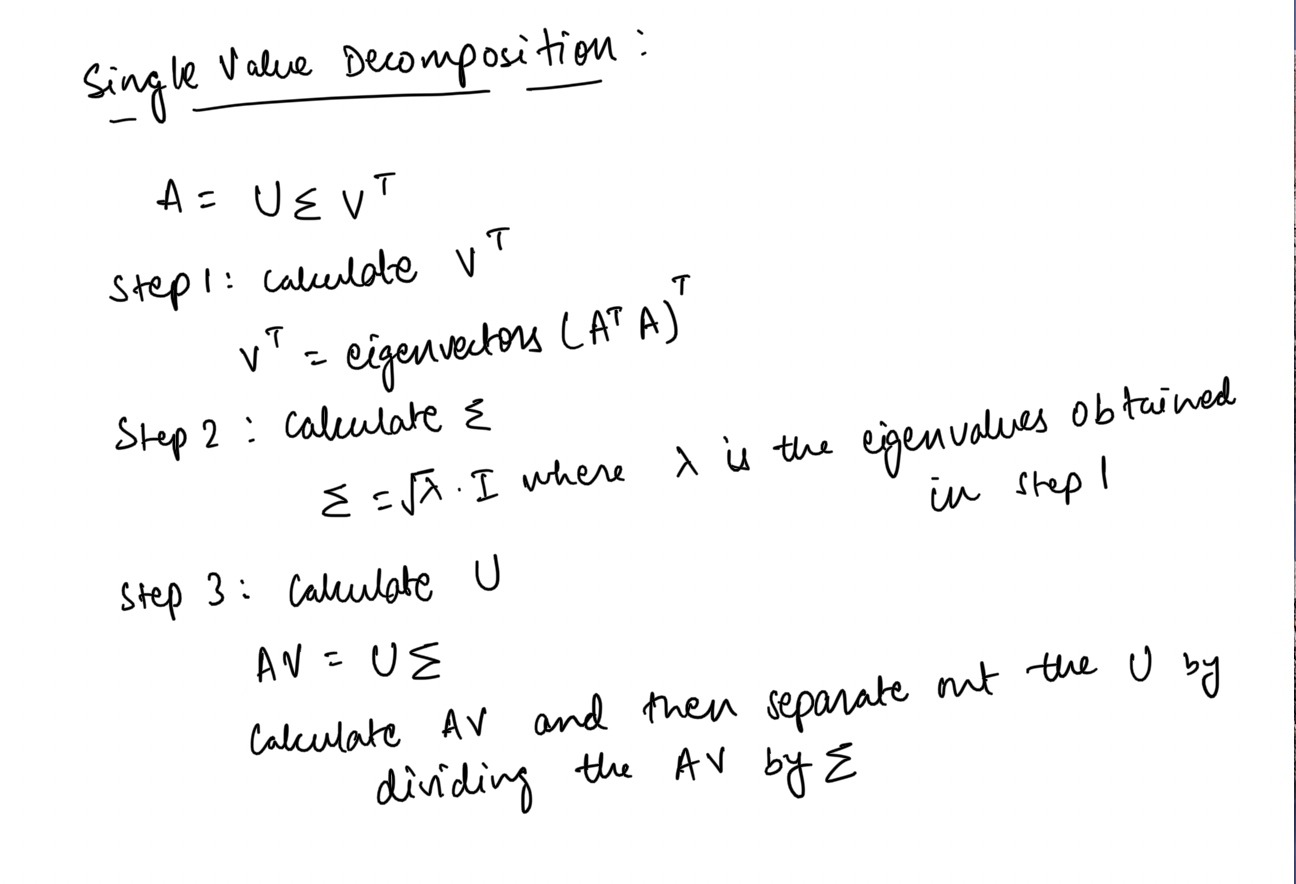 Single Value Decomposition :
A = U Σ Vᵀ
Step 1 : Calculate Vᵀ
Vᵀ = eigenvectors (Aᵀ A)ᵀ
Step 2 : Calculate Σ
Σ = √λ . I where λ is the eigenvalues obtained
in step 1
Step 3 : Calculate U
AV = U Σ
Calculate AV and then separate out the U by
dividing the AV by Σ